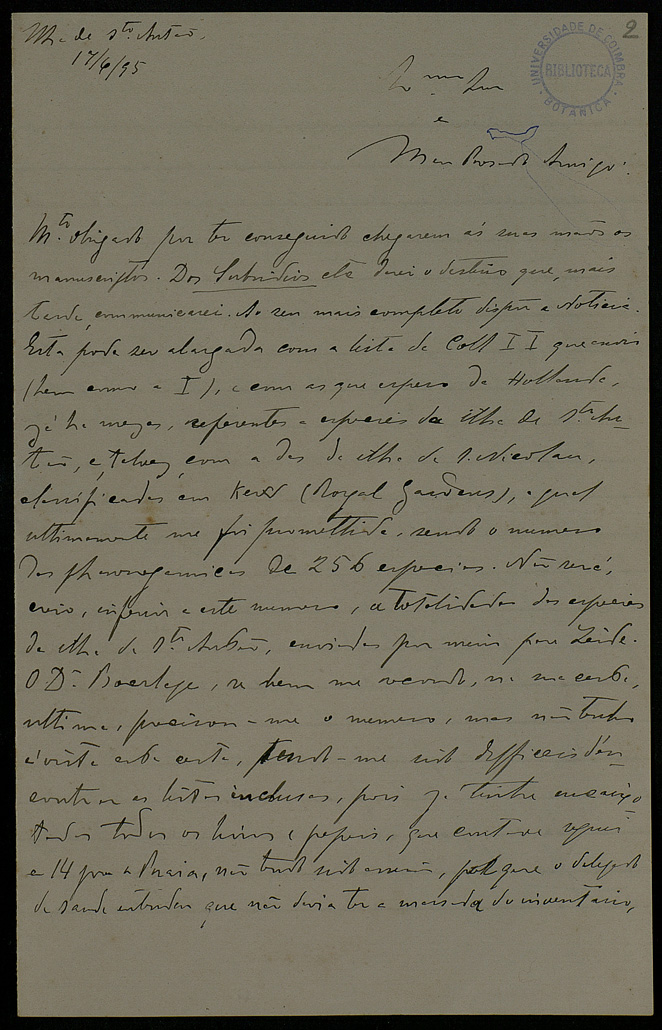 Ilha de Sto. Antão.
17/6/95
2
UNIVERSIDADE DE COIMBRA
BIBLIOTECA
BOTANICA
e
Meu Prezado Amigo:
Mto. obrigado por ter conseguido chegarem ás suas mãos os
manuscriptos. Dos Subsidios etc darei o destino que, mais
tarde, communicarei. Ao seu mais completo dispôr a Noticia.
Esta pode ser alargada com a lista da Coll II que envio
(bem como a I), e com as que espero da Hollanda,
já ha mezes, referentes a especies da ilha de Sto. An-
tão, e, talvez, com a das da ilha de S. Nicolau,
classificadas em Kew (Royal Gardens), a qual
ultimamente me foi promettida, sendo o numero
das phanerogamicas de 256 especies. Não será,
creio, inferior a este numero, a totalidade das especies
da ilha de Sto. Antão, enviadas por mim para Leide.
O Dr. Boerlage, se bem me recordo, na sua carta,
ultima, precisou-me o numero, mas não tenho
á vista esta carta, tendo-me sido difficeis d'en
contrar as listas inclusas, pois já tinha encaixo
tados todos os livros e papeis, que contava seguir
a 14 para a Praia, não tendo sido assim, porque o delegado
de saude entendeu que não devia ter a massada do inventario,